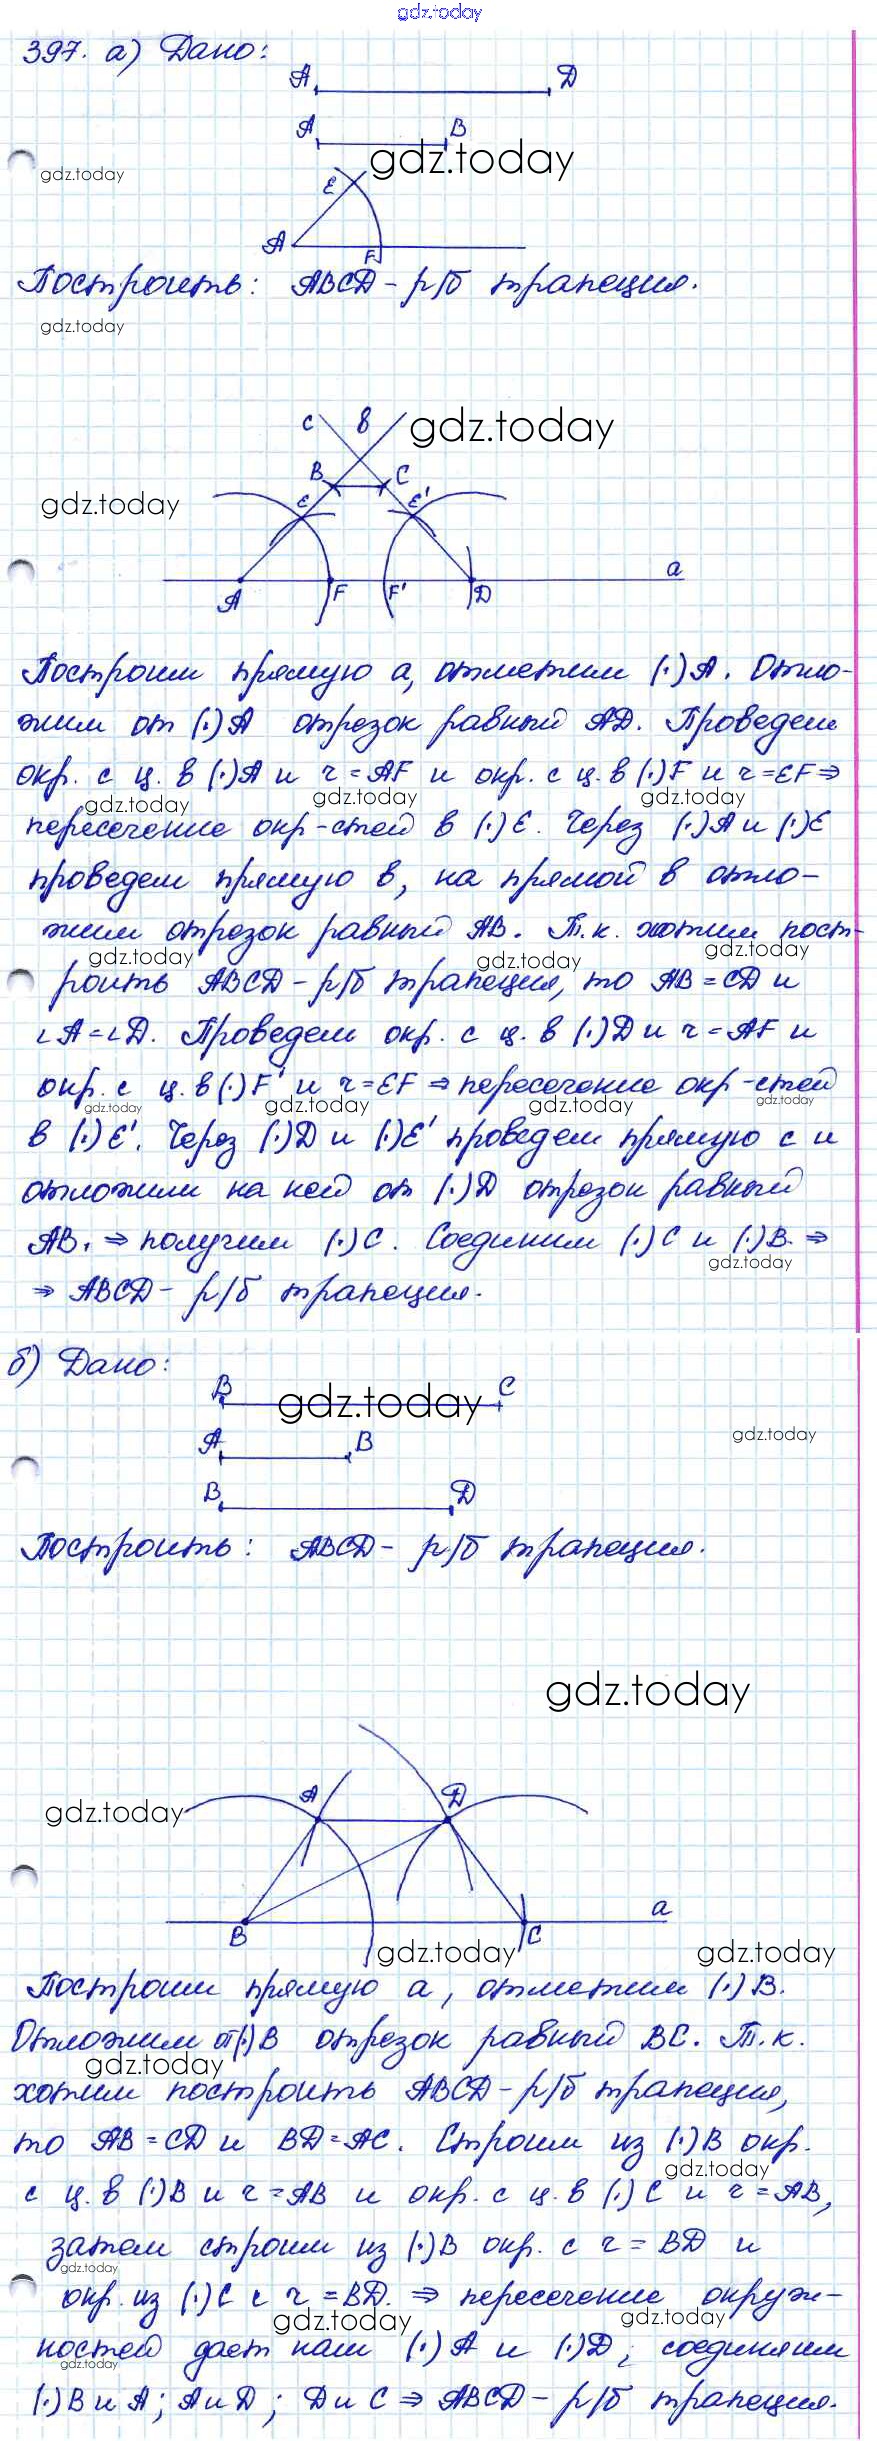 gdz.today
397. а) Дано:
A D
A B
gdz.today
gdz.today
E
A F
Построить: ABCD - р/б трапеция.
gdz.today
c в gdz.today
B C
gdz.today E E'
a
A F F' D
Построим прямую a, отметим (·)A. Отло-
жим от (·)A отрезок равный AD. Проведем
окр. с ц. в (·)A и r = AF и окр. с ц. в (·)F и r = EF ⇒
gdz.today gdz.today gdz.today
пересечение окр-стей в (·)E. Через (·)A и (·)E
проведем прямую в, на прямой в отло-
жим отрезок равный AB. Т.к. хотим пост-
gdz.today gdz.today gdz.today
роить ABCD - р/б трапеция, то AB = CD и
∠A = ∠D. Проведем окр. с ц. в (·)D и r = AF и
окр. с ц. в (·)F' и r = EF ⇒ пересечение окр-стей
gdz.today gdz.today gdz.today gdz.today
в (·)E'. Через (·)D и (·)E' проведем прямую c и
отложим на ней от (·)D отрезок равный
AB, ⇒ получим (·)C. Соединим (·)C и (·)B. ⇒
gdz.today
⇒ ABCD - р/б трапеция.
б) Дано:
B gdz.today C
gdz.today
A B
B D
Построить: ABCD - р/б трапеция.
gdz.today
A D
gdz.today
a
B C
gdz.today gdz.today
Построим прямую a, отметим (·)B.
Отложим от(·)B отрезок равный BC. Т.к.
gdz.today
хотим построить ABCD - р/б трапеция,
то AB = CD и BD = AC. Строим из (·)B окр.
gdz.today
с ц. в (·)B и r = AB и окр. с ц. в (·)C и r = AB,
затем строим из (·)B окр. с r = BD и
gdz.today
окр. из (·)C с r = BD. ⇒ пересечение окруж-
gdz.today gdz.today
ностей дает нам (·)A и (·)D; соединяем
gdz.today
(·)B и A; A и D; D и C ⇒ ABCD - р/б трапеция.